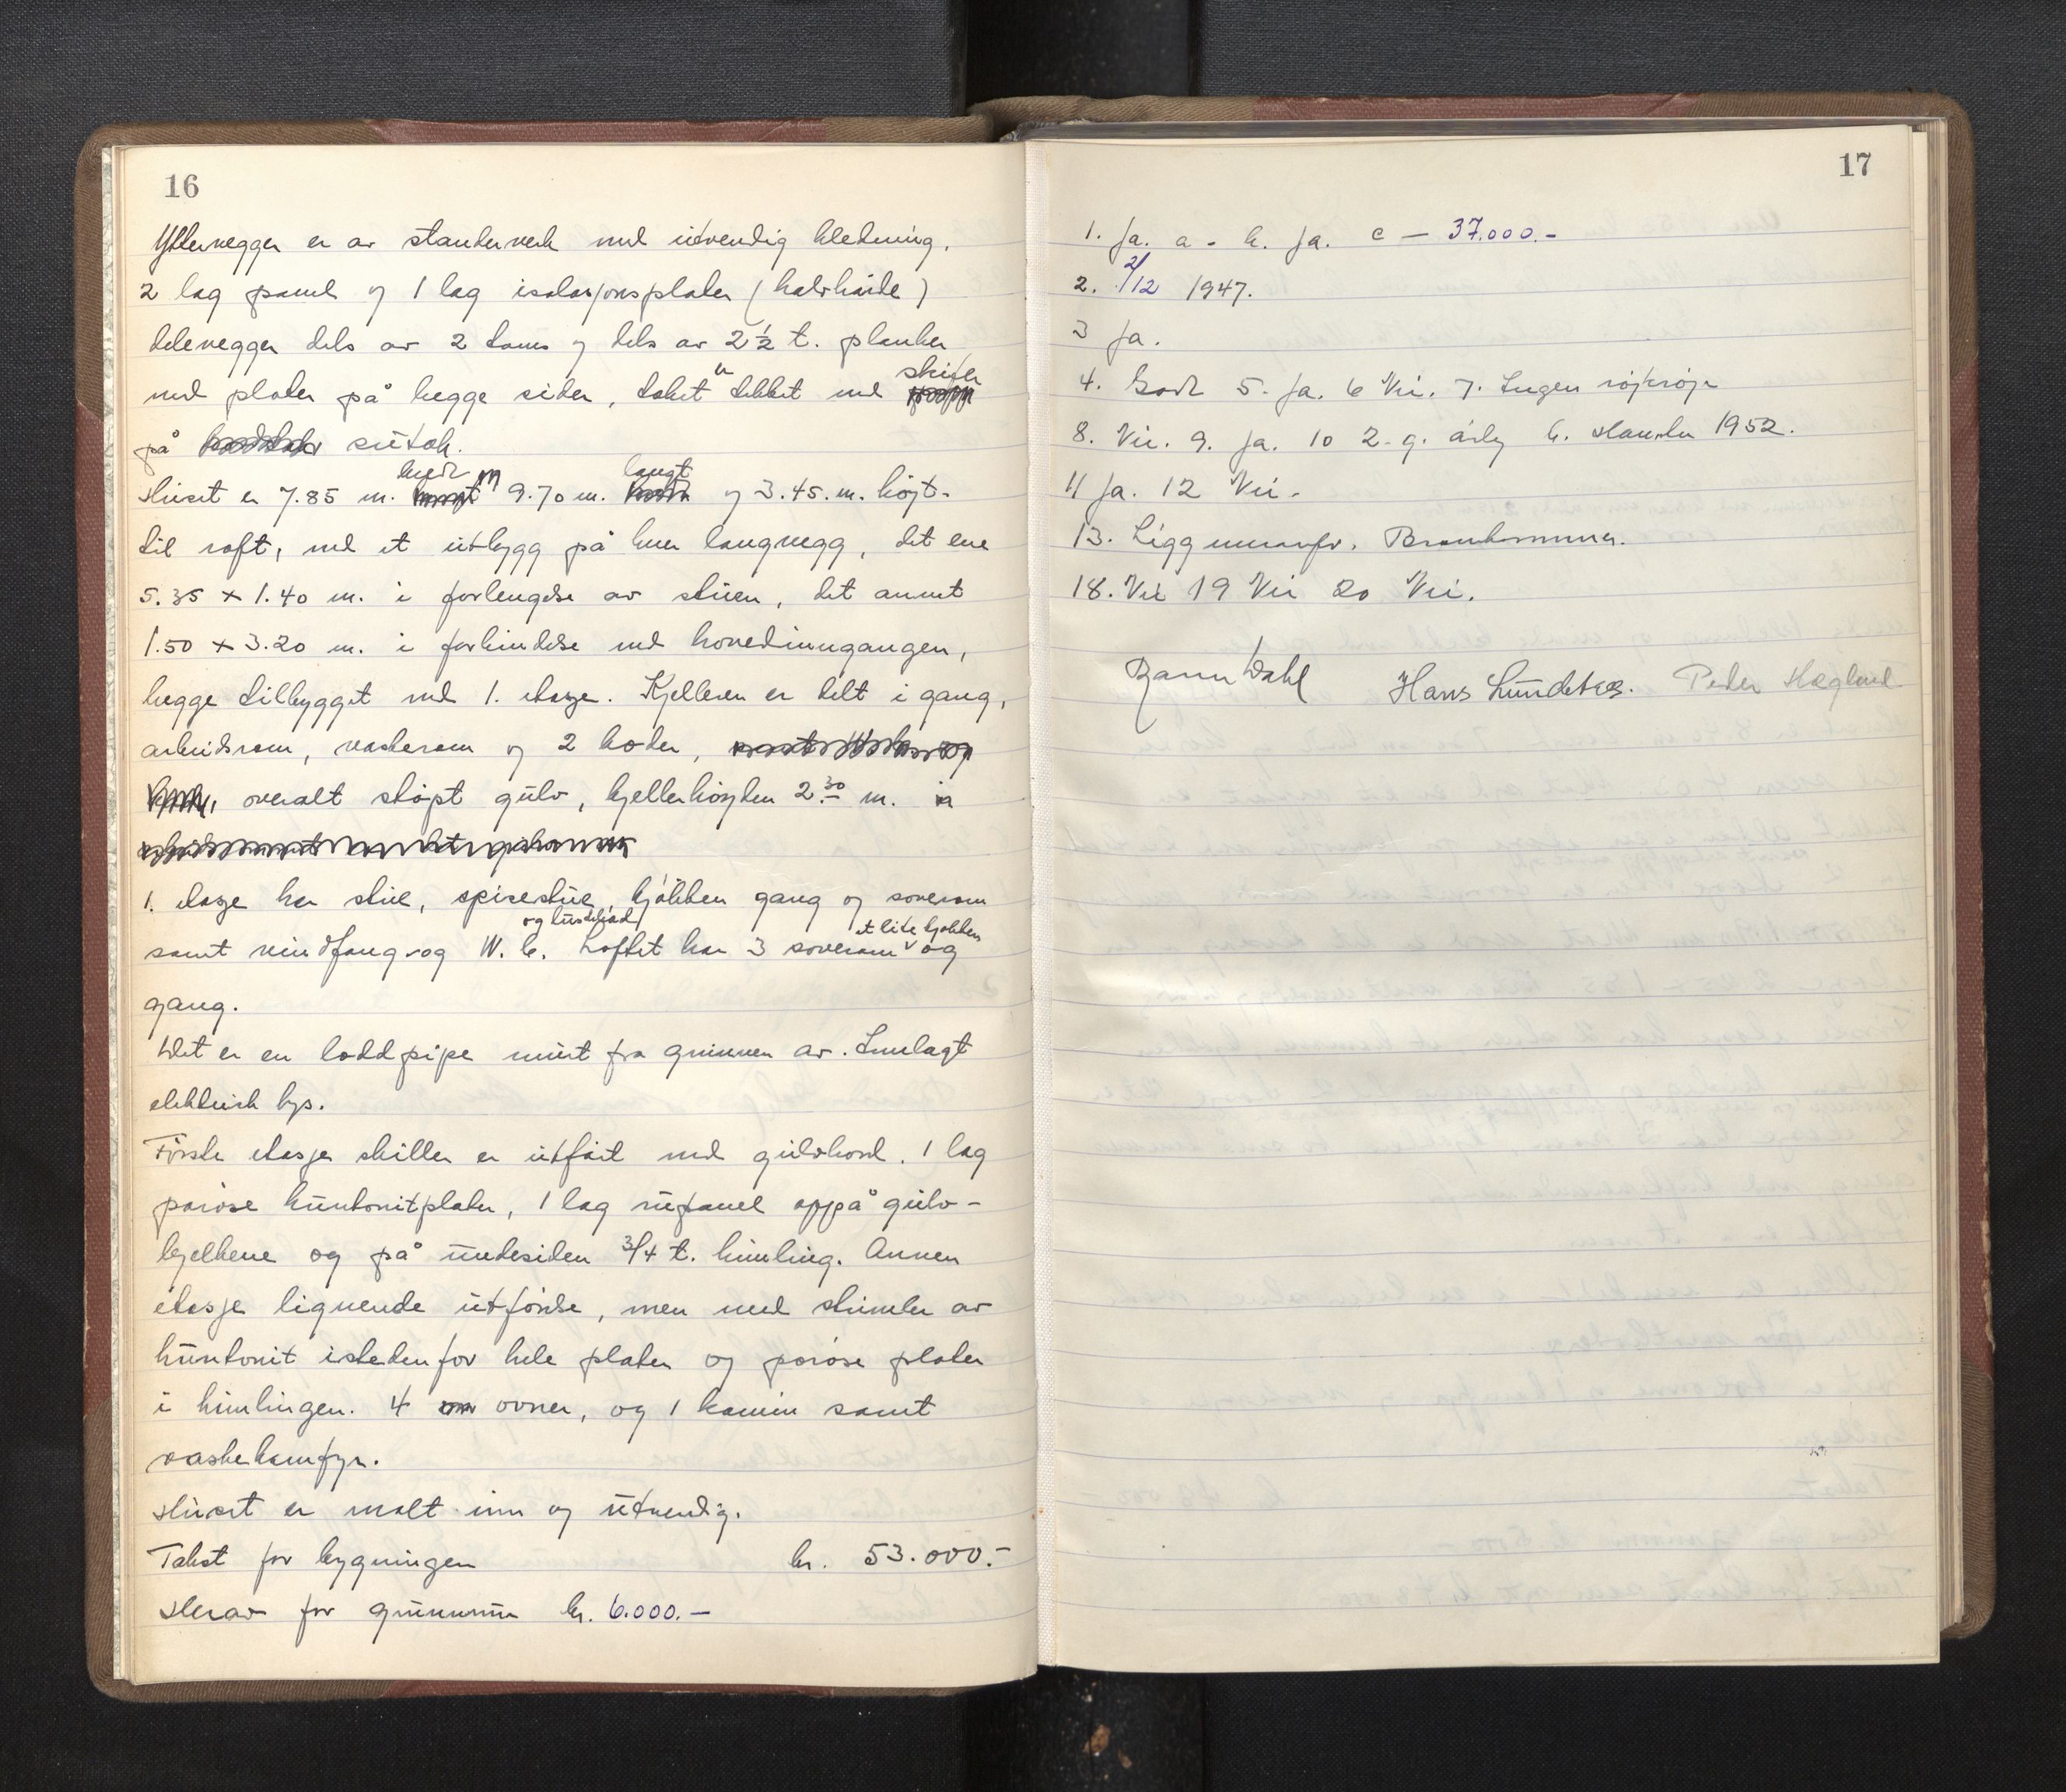 16
Yttervegger er av stenderverk med utvendig kledning,
2 lag panel og 1 lag isolasjonsplater (halvhårde)
delevegger dels av 2 toms og dels av 2 1/2 t. planker
med plater på begge sider, taket er dekket med skifer
på sutak.
Huset er 7.85 m. bredt 9.70 m. langt og 3.45. m. højt
til raft, med et utbygg på hver langvegg, det ene
5.35 x 1.40 m. i forlengelse av stuen, det annet
1.50 x 3.20 m. i forbindelse med hovedinngangen,
begge tilbygget med 1. etasje. Kjelleren er delt i gang,
arbeidsrom, vaskerom og 2 boder,
overalt støpt gulv, kjellerhøyden 2.30 m.
1. etasje har stue, spisestue, kjøkken gang og soverom
samt vindfang og W. C. og dusjbad Loftet har 3 soverom et lite kjøkken og
gang.
Det er en loddpipe murt fra grunnen av. Innlagt
elektrisk lys.
Første etasje skiller er utført med gulvbord. 1 lag
porøse huntonitplater, 1 lag rupanel oppå gulv-
bjelkene og på undesiden 3/4 t. himling. Annen
etasje lignende utførelse, men med strimler av
huntonit istedenfor hele plater og porøse plater
i himlingen. 4 ovner, og 1 kamin samt
vaskekomfyr.
Huset er malt inn og utvendig.
Takst for bygningen kr. 53.000.-
Herav for grunnmur kr. 6.000.-
17
1. Ja. a - b. Ja. c — 37.000.-
2. 2/12 1947.
3 Ja.
4. Godt 5. Ja. 6 Nei. 7. Ingen
8. Nei. 9. Ja. 10 2. g. årlig 1952.
11 Ja. 12 Nei.
13. Brannkummer.
18. Nei 19 Nei 20 Nei.
Dahl Hans Lundetræ. Peder Haglund